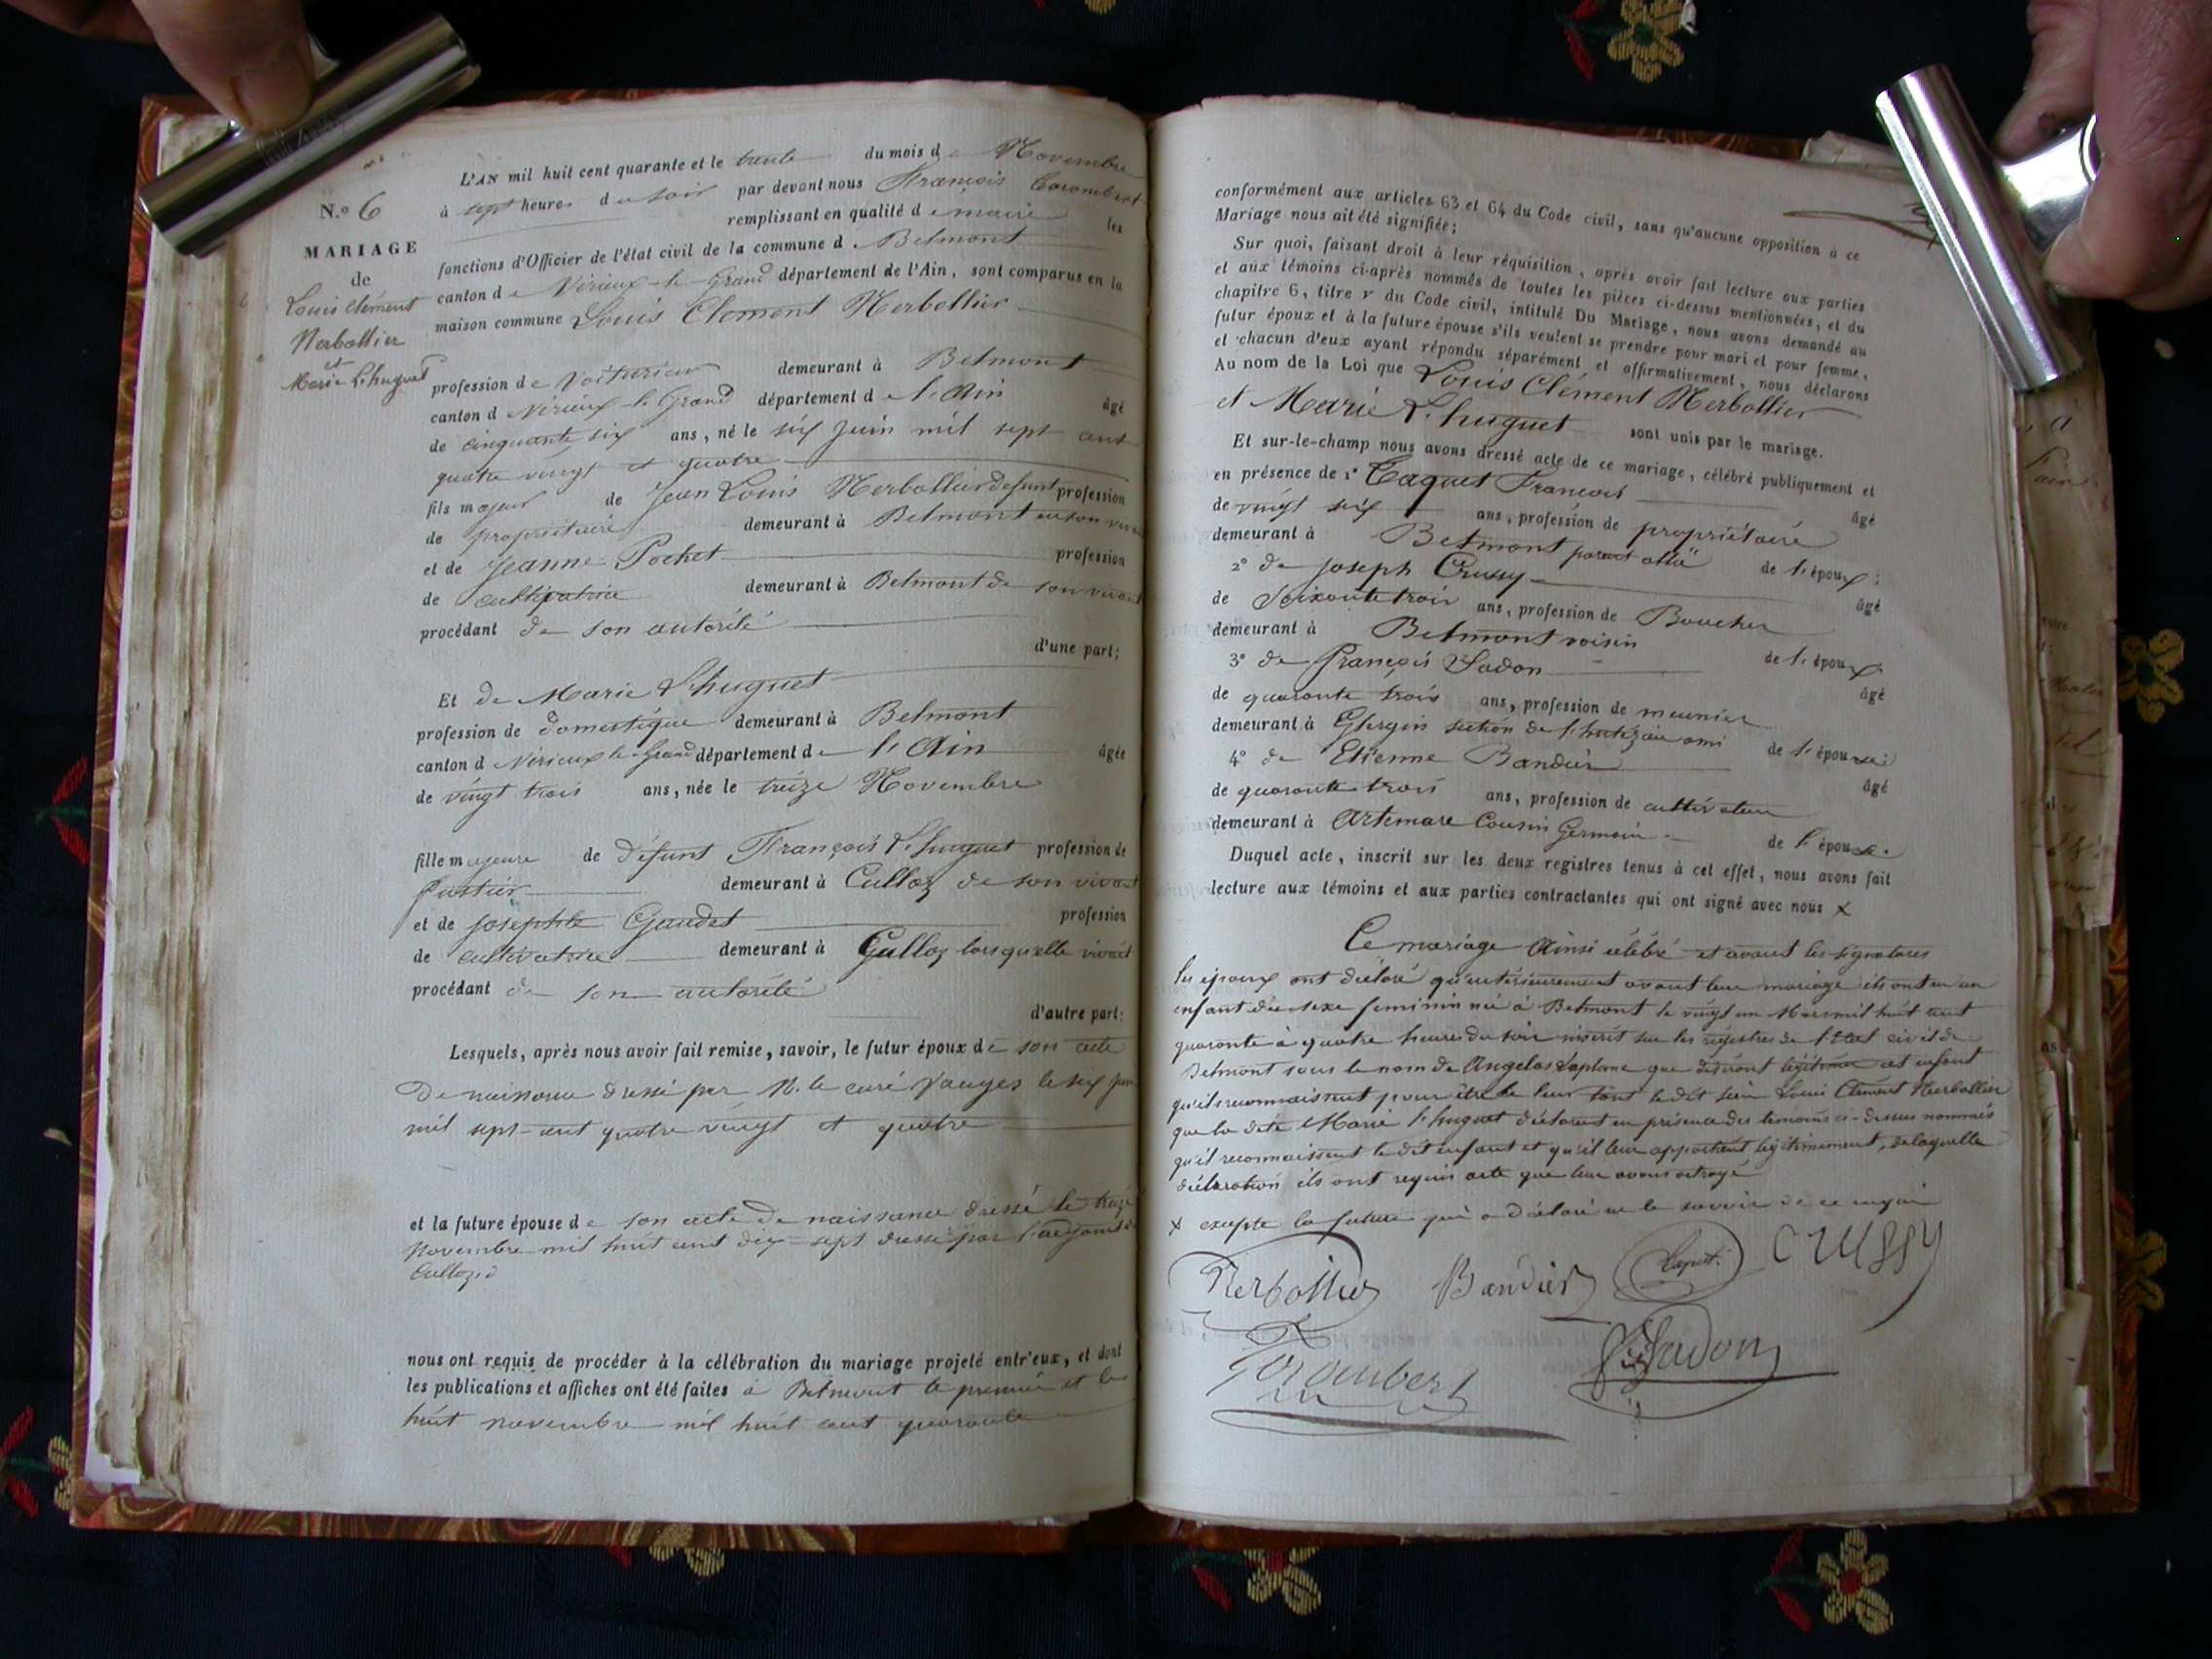 N.o 6
MARIAGE
de
Louis Clément
Nerbollier
et
Marie L'huguet
L'AN mil huit cent quarante et le trente du mois de Novembre
à sept heures du soir par devant nous François
remplissant en qualité de maire les
fonctions d'Officier de l'état civil de la commune d. Belmont
canton de Virieux-le-Grand département de l'Ain, sont comparus en la
maison commune Louis Clement Nerbollier
profession de Voiturier demeurant à Belmont
canton d Virieux-le-Grand département de l'Ain âgé
de cinquante six ans, né le six juin mil sept cent
quatre vingt et quatre
fils majeur de Jean Louis Nerbollier defunt profession
de propriétaire demeurant à Belmont en son vivant
et de Jeanne Pochet profession
de cultivatrice demeurant à Belmont de son vivant
procédant de son autorité
d'une part;
Et de Marie L'huguet
profession de domestique demeurant à Belmont
canton d Virieux le-Grand département de l'Ain âgée
de vingt trois ans, née le treize Novembre
fille majeure de défunt François L'huguet profession de
demeurant à Culloz de son vivant
et de Josephte Gaudet profession
de cultivatrice demeurant à Culloz lorsqu'elle vivait
procédant de son autorité
d'autre part:
Lesquels, après nous avoir fait remise, savoir, le futur époux de son acte
de naissance dressé par M. le curé le six juin
mil sept-cent quatre vingt et quatre
et la future épouse de son acte de naissance dressé le treize
Novembre mil huit cent dix-sept dressé par l'adjoint de
Culloz
nous ont requis de procéder à la célébration du mariage projeté entr'eux, et dont
les publications et affiches ont été faites à Belmont le premier et le
huit novembre mil huit cent quarante
conformément aux articles 63 et 64 du Code civil, sans qu'aucune opposition à ce
Mariage nous ait été signifiée;
Sur quoi, faisant droit à leur réquisition, après avoir fait lecture aux parties
et aux témoins ci-après nommés de toutes les pièces ci-dessus mentionnées, et du
chapitre 6, titre v du Code civil, intitulé Du Mariage, nous avons demandé au
futur époux et à la future épouse s'ils veulent se prendre pour mari et pour femme,
et chacun d'eux ayant répondu séparément et affirmativement, nous déclarons
Au nom de la Loi que Louis Clément Nerbollier
et Marie L'huguet sont unis par le mariage.
Et sur-le-champ nous avons dressé acte de ce mariage, célébré publiquement et
en présence de 1° Caquet François âgé
de vingt six ans, profession de propriétaire
demeurant à Belmont parent allié de l'époux;
2° de Joseph Crussy âgé
de Soixante trois ans, profession de Boucher
demeurant à Belmont voisin de l'époux
3° de François Sadon âgé
de quarante trois ans, profession de meunier
demeurant à section de ami de l'épouse;
4° de Etienne Bandier âgé
de quarante trois ans, profession de cultivateur
demeurant à Artemare Cousin Germain de l'épouse.
Duquel acte, inscrit sur les deux registres tenus à cet effet, nous avons fait
lecture aux témoins et aux parties contractantes qui ont signé avec nous X
Ce mariage Ainsi célébré et avant les signatures
les époux ont déclaré qu'antérieurement avant leur mariage ils ont eu un
enfant du sexe feminin née à Belmont le vingt un Mars mil huit cent
quarante à quatre heures du soir inscrit sur les régistres de l'état civil de
Belmont sous le nom de que désirant légitimer cet enfant
qu'ils reconnaissent pour être le leur tant le dit Louis Clément Nerbollier
que la dite Marie l'huguet déclarent en présence des témoins ci-dessus nommés
qu'il reconnaissent le dit enfant et qu'il leur appartient légitimement, de laquelle
déclaration ils ont requis acte que leur avons octroyé
X excepté la future qui a déclaré ne le savoir de ce enquis
Nerbollier Bandier Caquet CRUSSY
Sadon